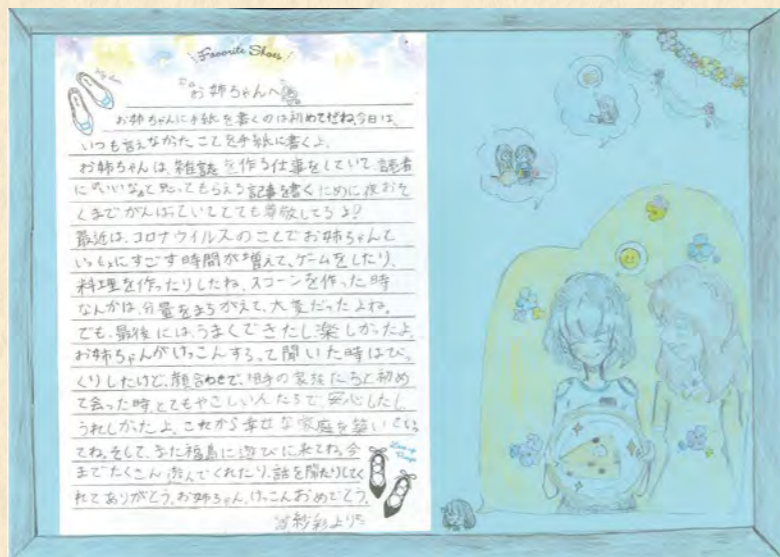 Favorite Shoes
My dear
お姉ちゃんへ
お姉ちゃんに手紙を書くのは初めてだね。今日は、
いつも言えなかたことを手紙に書くよ。
お姉ちゃんは、雑誌を作る仕事をしていて、読者
に"いいな"と思ってもらえる記事を書くために夜おそ
くまでがんばっていてとても尊敬してるよ!
最近は、コロナウイルスのことでお姉ちゃんと
いっしょにすごす時間が増えて、ゲームをしたり、
料理を作ったりしたね。スコーンを作った時
なんかは、分量をまちがえて、大変だったよね。
でも、最後には、うまくできたし、楽しかったよ。
お姉ちゃんがけっこんするって聞いた時はびっ
くりしたけど、顔合わせで、相手の家族たちと初め
て会った時、とてもやさしい人たちで、安心したし
うれしかったよ。これから幸せな家庭を築いていっ
てね。そして、また福島に遊びに来てね。今
までたくさん遊んでくれたり、話を聞たりしてく
れてありがとう。お姉ちゃん、けっこんおめでとう。
紗彩より